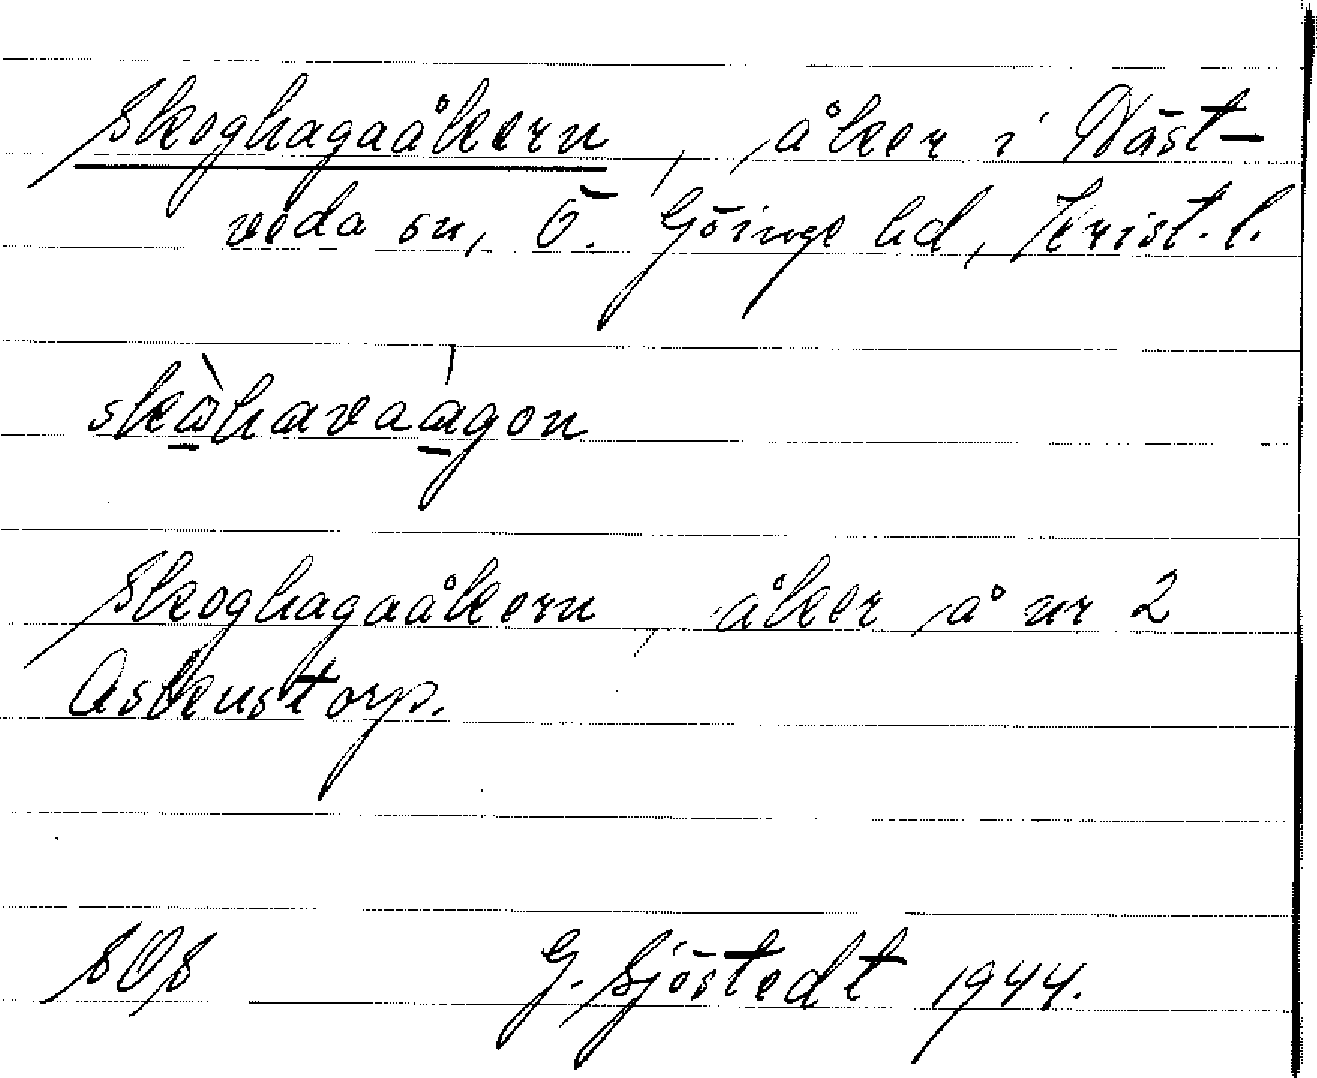 Skoghagaåkern, åker i Näst-
veda sn, Ö. Göinge hd, Krist. l.
skàhavaágon
Skoghagaåkern, åker å nr 2
Askenstorp.
SOS G. Sjöstedt 1944.